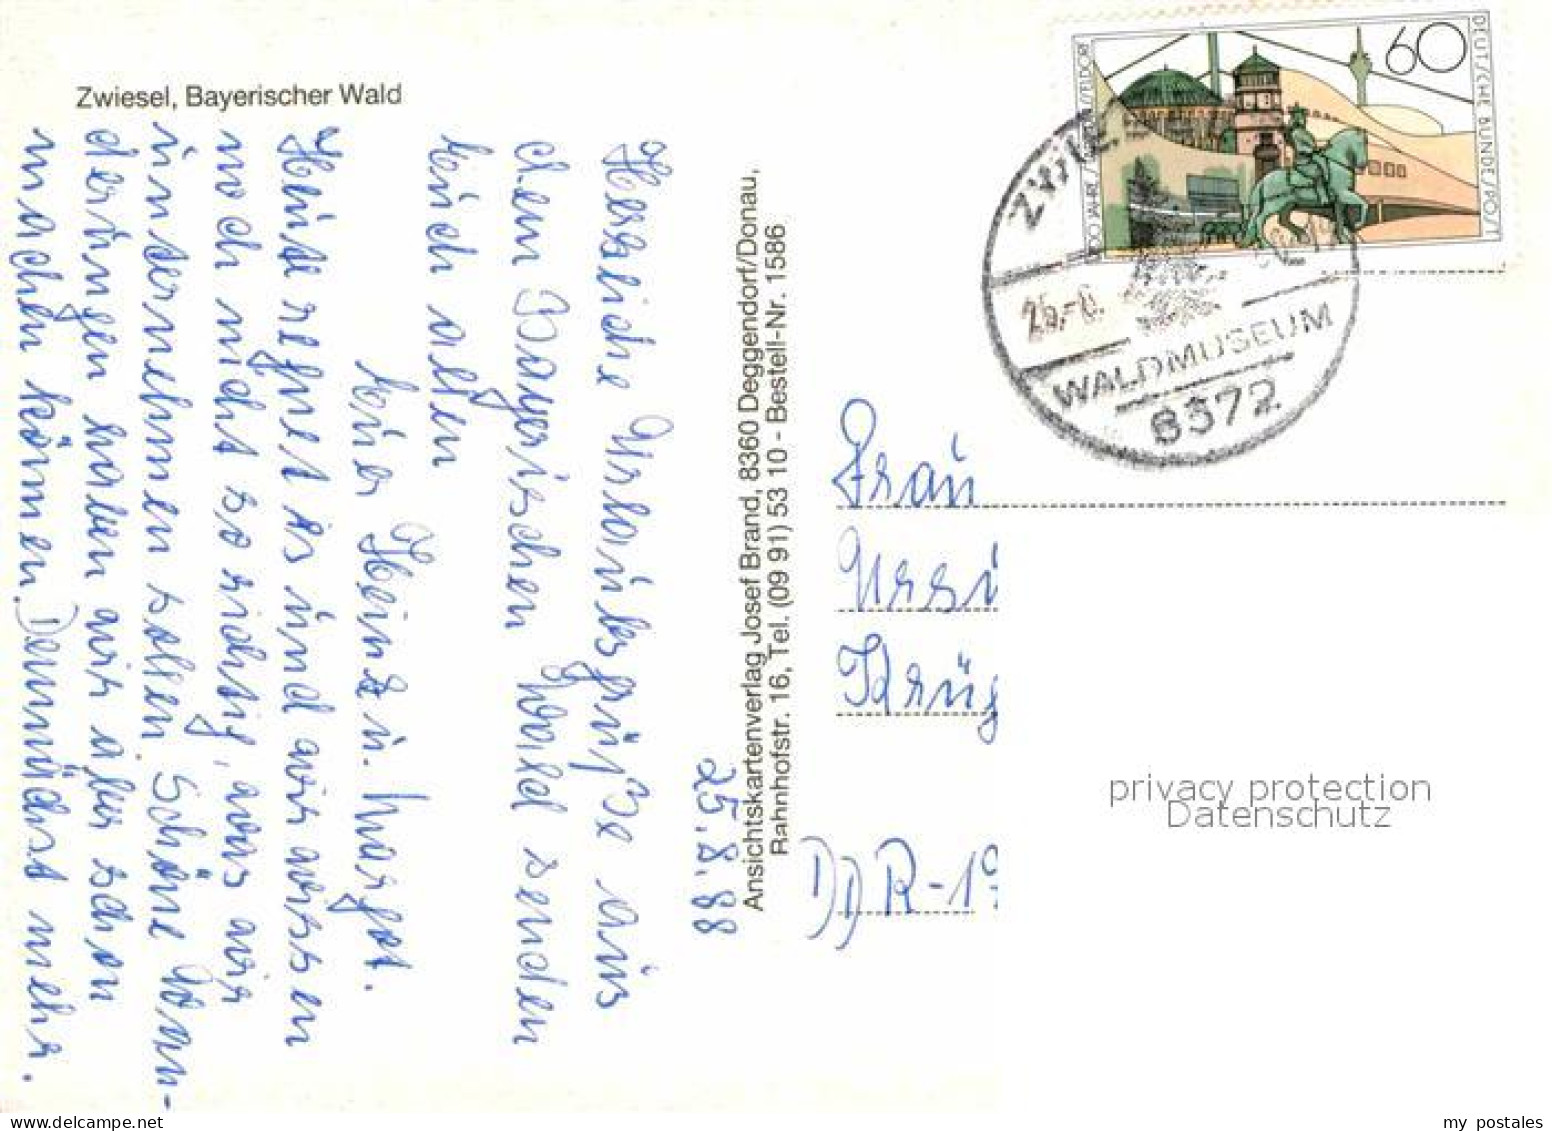 Zwiesel, Bayerischer Wald
25.8.88
Herzliche Urlaubsgrüße aus
dem Bayerischen Wald senden
Euch allen
Eure Heinz u. Margot.
Heute regnet es und wir wissen
noch nicht so richtig, was wir
unternehmen sollen. Schöne Wan-
derungen haben wir aber schon
machen können. Demnächst mehr.
Ansichtskartenverlag Josef Brand, 8360 Deggendorf/Donau,
Bahnhofstr. 16, Tel. (09 91) 53 10 - Bestell-Nr. 1586
60
DEUTSCHE BUNDESPOST
ZWIE
25.-8.
WALDMUSEUM
8372
Frau
Ursu
Krüg
DDR-19
privacy protection
Datenschutz
my postales